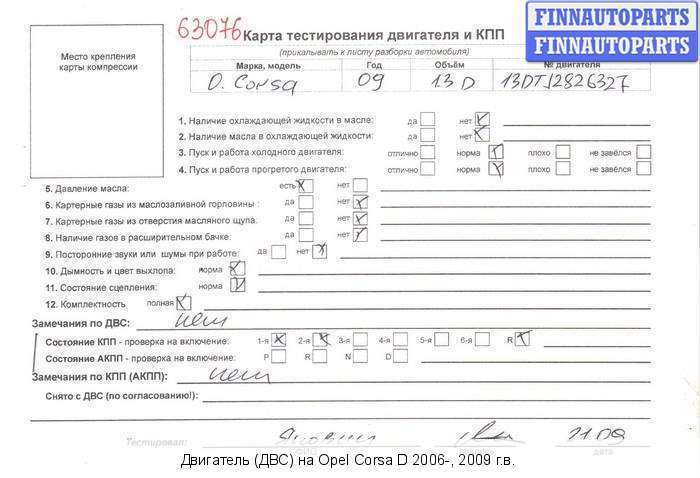 63076 Карта тестирования двигателя и КПП
FINNAUTOPARTS
FINNAUTOPARTS
(прикалывать к листу разборки автомобиля)
Место крепления
карты компрессии
Марка, модель Год Объём № двигателя
O. Corsa 09 13 D 13DTJ2826327
1. Наличие охлаждающей жидкости в масле: да нет
2. Наличие масла в охлаждающей жидкости: да нет
3. Пуск и работа холодного двигателя: отлично норма плохо не завёлся
4. Пуск и работа прогретого двигателя: отлично норма плохо не завёлся
5. Давление масла: есть нет
6. Картерные газы из маслозаливной горловины: да нет
7. Картерные газы из отверстия масляного щупа: да нет
8. Наличие газов в расширительном бачке: да нет
9. Посторонние звуки или шумы при работе: да нет
10. Дымность и цвет выхлопа: норма
11. Состояние сцепления: норма
12. Комплектность полная
Замечания по ДВС: нет
Состояние КПП - проверка на включение: 1-я 2-я 3-я 4-я 5-я 6-я R
Состояние АКПП - проверка на включение: P R N D
Замечания по КПП (АКПП): нет
Снято с ДВС (по согласованию!):
Тестировал: 21.09
дата
Двигатель (ДВС) на Opel Corsa D 2006-, 2009 г.в.